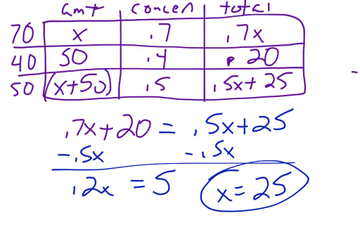 amt concen total
70 x .7 .7x
40 50 .4 . 20
50 (x+50) .5 .5x + 25
.7x+20 = .5x+25
-.5x -.5x
.2x = 5 x = 25